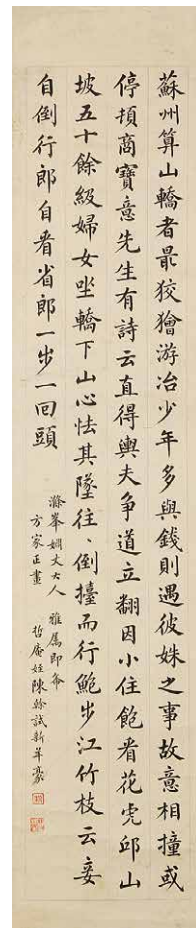 蘇州算山轎者最狡獪游冶少年多與錢則遇彼姝之事故意相撞或
停頓商寶意先生有詩云直得輿夫争道立翻因小住飽看花虎邱山
坡五十餘級婦女坐轎下山心怯其墜往、倒擡而行鮑步江竹枝云妾
自倒行郎自看省郎一步一回頭
滌峯姻丈大人 雅屬即希
方家正畫
哲庵姪陳翰試新羊豪